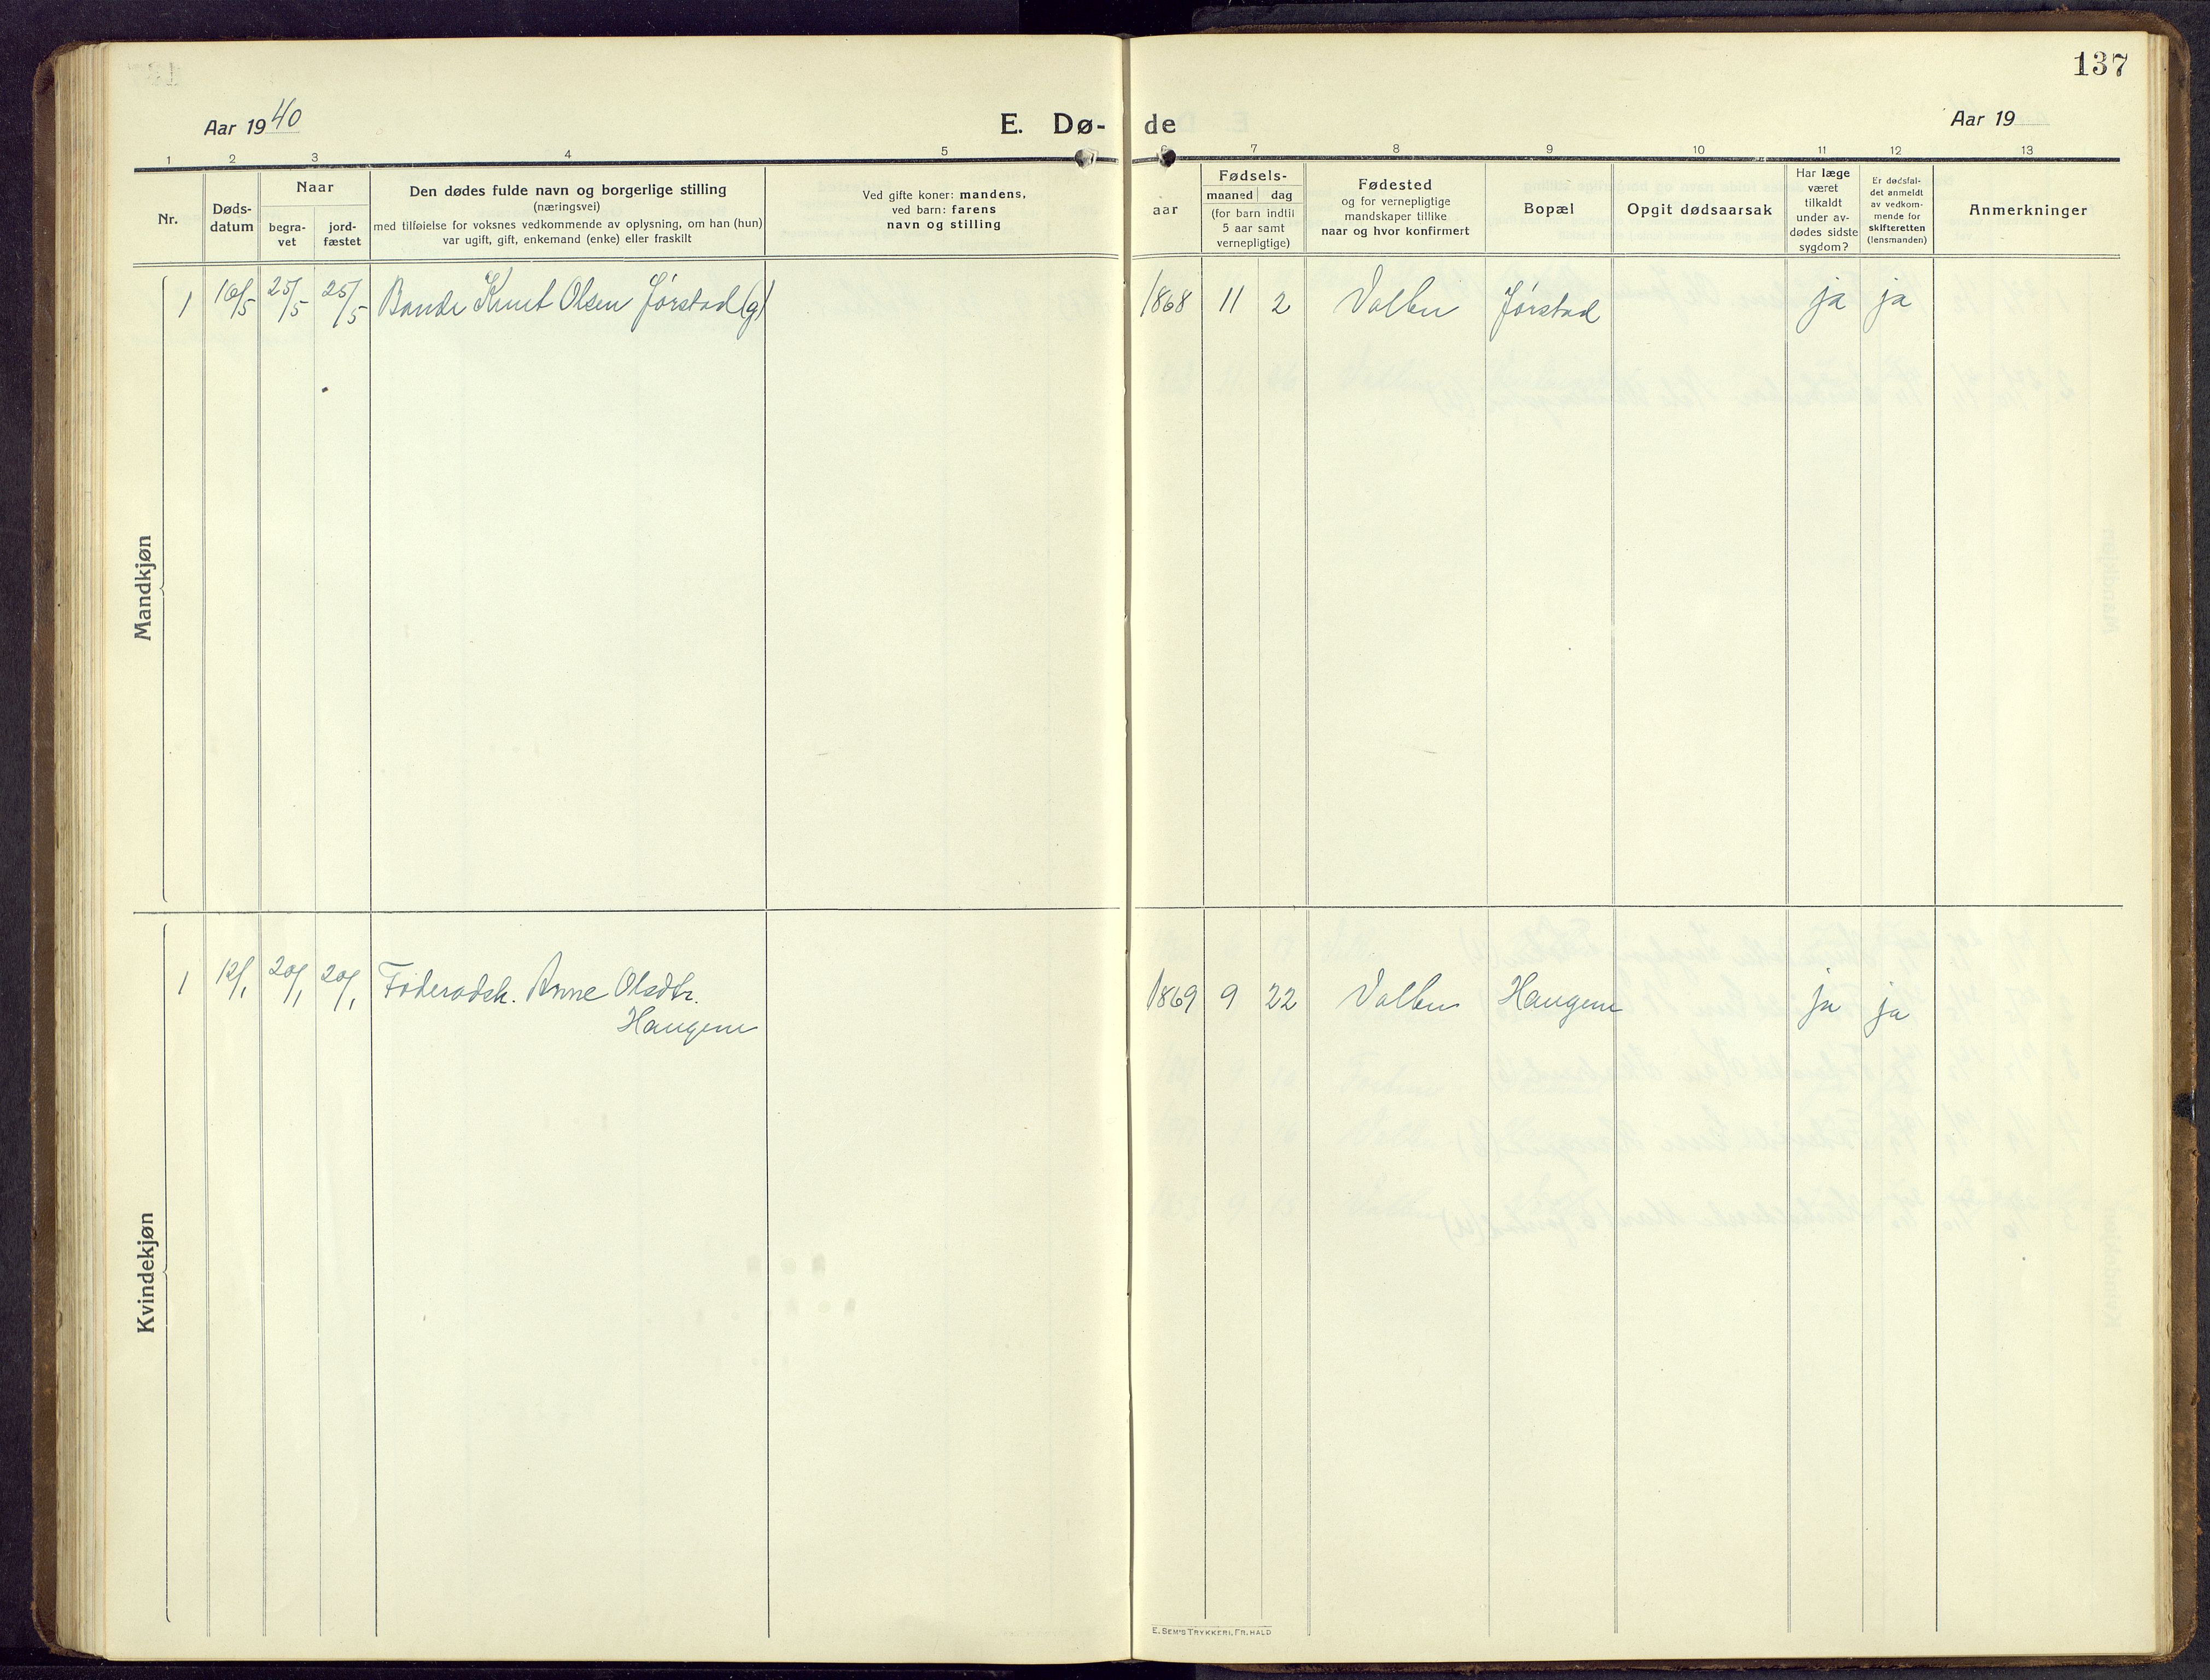 137
Aar 1940
E. Dø-
de
Aar 19
1 2 3 4 5 6 7 8 9 10 11 12 13
Nr.
Døds-
datum
Naar
begra-
vet
jord-
fæstet
Den dødes fulde navn og borgerlige stilling
(næringsvei)
med tilføielse for voksnes vedkommende av oplysning, om han (hun)
var ugift, gift, enkemand (enke) eller fraskilt
Ved gifte koner: mandens,
ved barn: farens
navn og stilling
Fødsels-
aar
maaned dag
(for barn indtil
5 aar samt
vernepligtige)
Fødested
og for vernepligtige
mandskaper tillike
naar og hvor konfirmert
Bopæl
Opgit dødsaarsak
Har læge
været
tilkaldt
under av-
dødes sidste
sygdom?
Er dødsfal-
det anmeldt
av vedkom-
mende for
skifteretten
(lensmanden)
Anmerkninger
Mandkjøn
1 16/5 25/5 25/5 Bonde Knut Olsen Jørstad (g) 1868 11 2 Volbu Jørstad ja ja
Kvindekjøn
1 12/1 20/1 20/1 Föderadsk. Anne Olsdtr. 1869 9 22 Volbu Haugene ja ja
Haugene
E. SEM'S TRYKKERI, FR. HALD